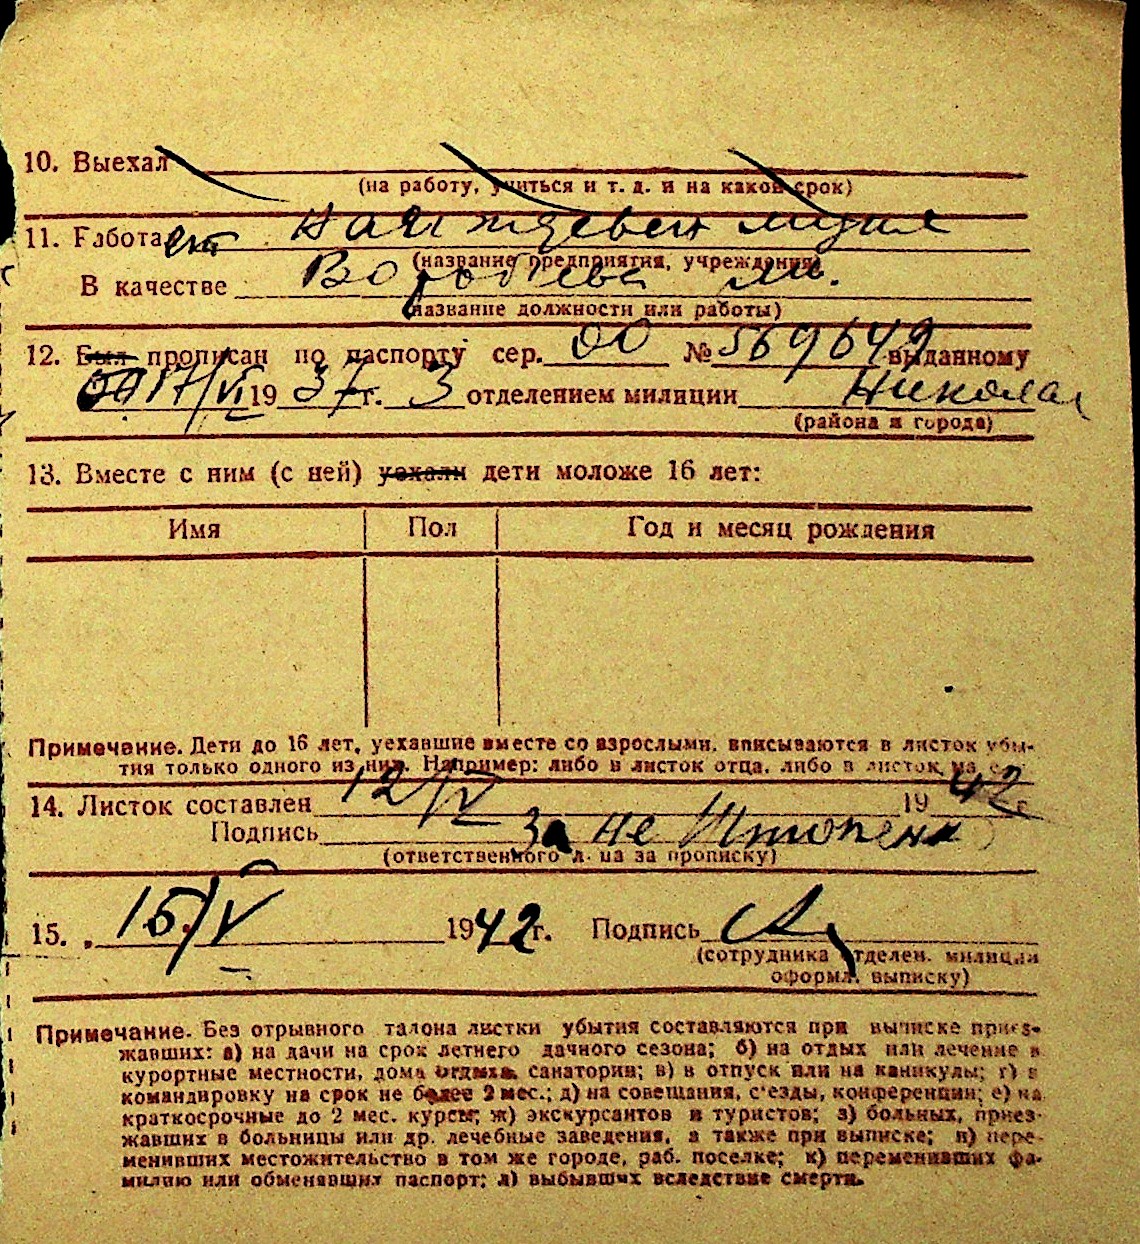 10. Выехал
(на работу, учиться и т. д. и на какой срок)
11. Работает
(название предприятия, учреждения)
В качестве Воробьева
(название должности или работы)
12. Был прописан по паспорту сер. № 569649 выданному
17/VI 1937 г. 3 отделением милиции Никола
(района и города)
13. Вместе с ним (с ней) уехали дети моложе 16 лет:
Имя Пол Год и месяц рождения
Примечание. Дети до 16 лет, уехавшие вместе со взрослыми, вписываются в листок убы-
тия только одного из них. Например: либо в листок отца, либо в листок
14. Листок составлен 12/V 1942 г.
Подпись За не
(ответственного л-ца за прописку)
15. 15/V 1942 г. Подпись
(сотрудника отделен. милиции
оформл. выписку)
Примечание. Без отрывного талона листки убытия составляются при выписке приез-
жавших: а) на дачи на срок летнего дачного сезона; б) на отдых или лечение в
курортные местности, дома отдыха, санатории; в) в отпуск или на каникулы; г) в
командировку на срок не более 2 мес.; д) на совещания, с'езды, конференции; е) на
краткосрочные до 2 мес. курсы; ж) экскурсантов и туристов; з) больных, приез-
жавших в больницы или др. лечебные заведения, а также при выписке; и) пере-
менивших местожительство в том же городе, раб. поселке; к) переменивших фа-
милию или обменявших паспорт; л) выбывших вследствие смерти.